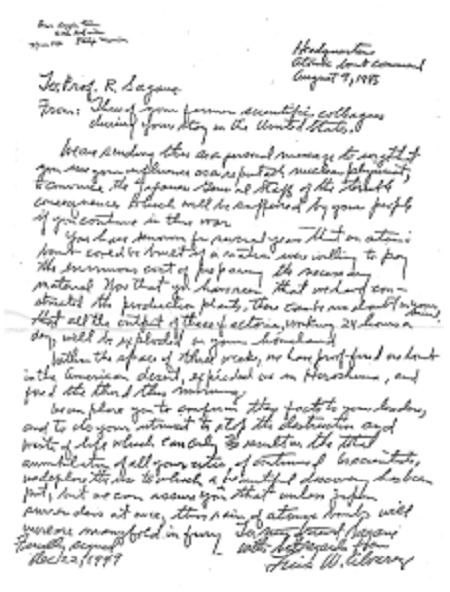 Headquarters
Atomic bomb command
August 9, 1945
To: Prof. R. Sagane
From: Three of your former scientific colleagues
during your stay in the United States.
We are sending this as a personal message to urge that
you use your influence as a reputable nuclear physicist,
to convince the Japanese General Staff of the terrible
consequences which will be suffered by your people
if you continue in this war.
You have known for several years that an atomic
bomb could be built if a nation were willing to pay
the enormous cost of preparing the necessary
material. Now that you have seen that we have con-
structed the production plants, there can be no doubt in your mind,
that all the output of these factories, working 24 hours a
day, will be exploded on your homeland.
Within the space of three weeks, we have proof-fired one bomb
in the American desert, exploded one in Hiroshima, and
fired the third this morning.
We implore you to confirm these facts to your leaders,
and to do your utmost to stop the destruction and
waste of life which can only result in the total
annihilation of all your cities if continued. As scientists,
we deplore the use to which a beautiful discovery has been
put, but we can assure you that unless Japan
surrenders at once, this rain of atomic bombs will
increase manyfold in fury.
To my friend Sagane
With best regards from
Luis W. Alvarez
Finally signed
Dec 22, 1949